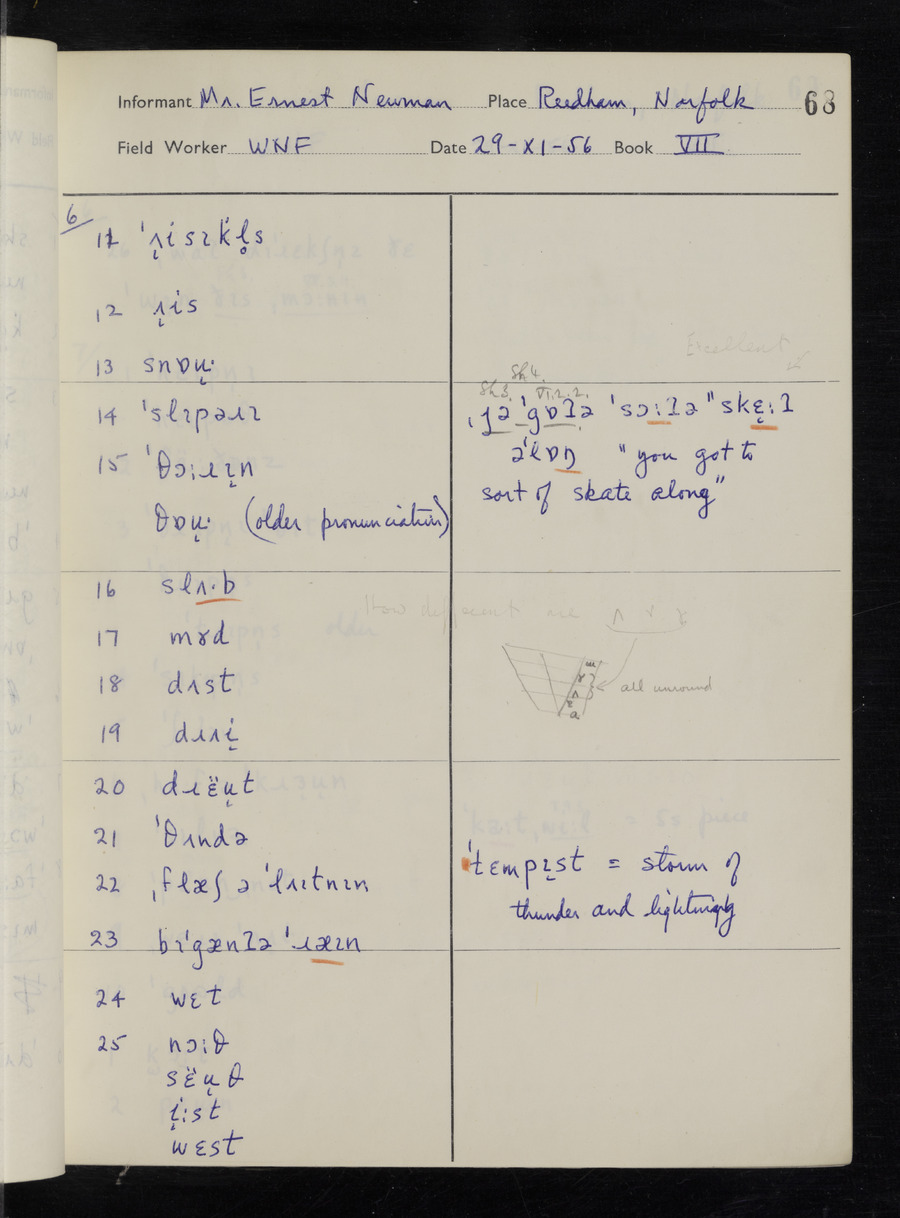 Informant Mr. Ernest Newman Place Reedham, Norfolk 68
Field Worker WNF Date 29-XI-56 Book VII
6
11 ˈʌ̨isɪkl̥s
12 ʌ̨is
13 snɒu̜·
14 ˈslɪpəɹɪ
15 ˈθɔ:ɹɪ̨n
θɒu̜· (older pronunciation)
16 slʌ·b
17 mɤd
18 dʌst
19 dɹʌi̜
20 dɹɛ̈u̜t
21 ˈθʌndə
22 ˌflæʃ ə ˈlʌɪtnɪn
23 bɪˈgænʔə ˈɹæɪn
24 wɛt
25 nɔ:θ
sɛ̈u̜θ
i̜:st
wɛst
Excellent
Sh4.
Sh3. VI.2.2.
ˌjə ˈgɒʔə ˈsɔ:ʔə "skɛ̨:ʔ
əˈlɒŋ "you got to
sort of skate along"
How different are ʌ ɤ ɤ̞
ɯ
ɤ
ʌ
ɑ
all unround
ˈtɛmpɪ̨st = storm of
thunder and lightning